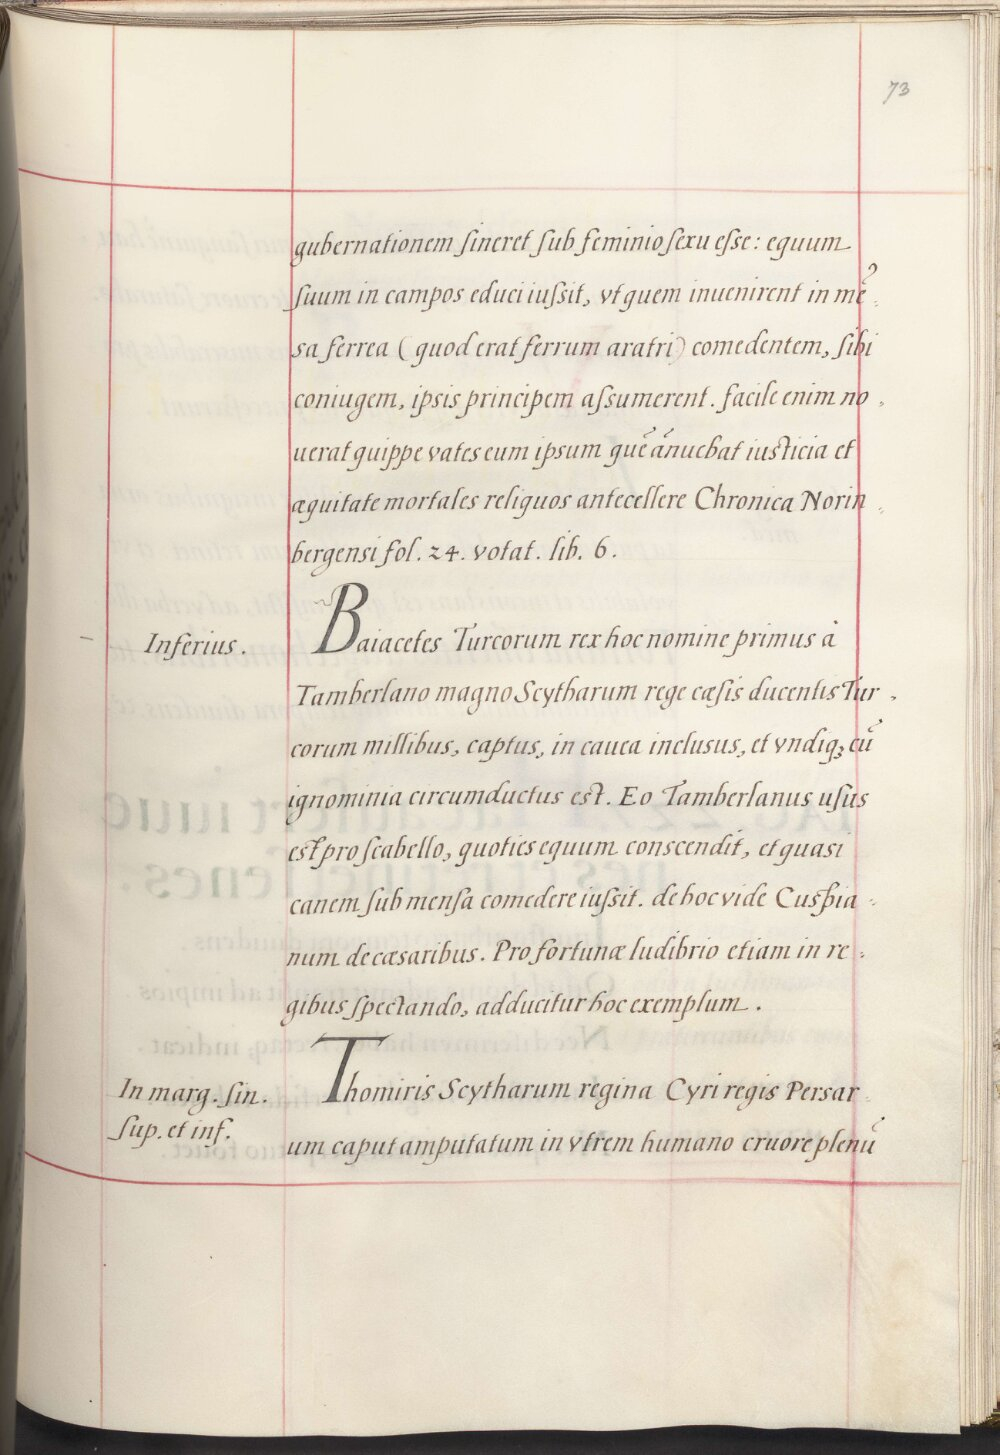 73
gubernationem sineret sub feminio sexu esse: equum
suum in campos educi iussit, vt quem inuenirent in mẽ-
sa ferrea (quod erat ferrum aratri) comedentem, sibi
coniugem, ipsis principem assumerent. facile enim no-
uerat quippe vates eum ipsum quẽ ãnuebat iusticia et
æquitate mortales reliquos antecellere Chronica Norin-
bergensi fol. 24. votat. lib. 6.
Inferius.
Baiacetes Turcorum rex hoc nomine primus à
Tamberlano magno Scytharum rege cæsis ducentis Tur-
corum millibus, captus, in cauea inclusus, et vndiq₃ cũ
ignominia circumductus est. Eo Tamberlanus usus
est pro scabello, quoties equum conscendit, et quasi
canem sub mensa comedere iussit. de hoc vide Cuspia-
num de cæsaribus. Pro fortunæ ludibrio etiam in re-
gibus spectando, adducitur hoc exemplum.
In marg. sin.
sup. et inf.
Thomiris Scytharum regina Cyri regis Persar-
um caput amputatum in vtrem humano cruore plenũ